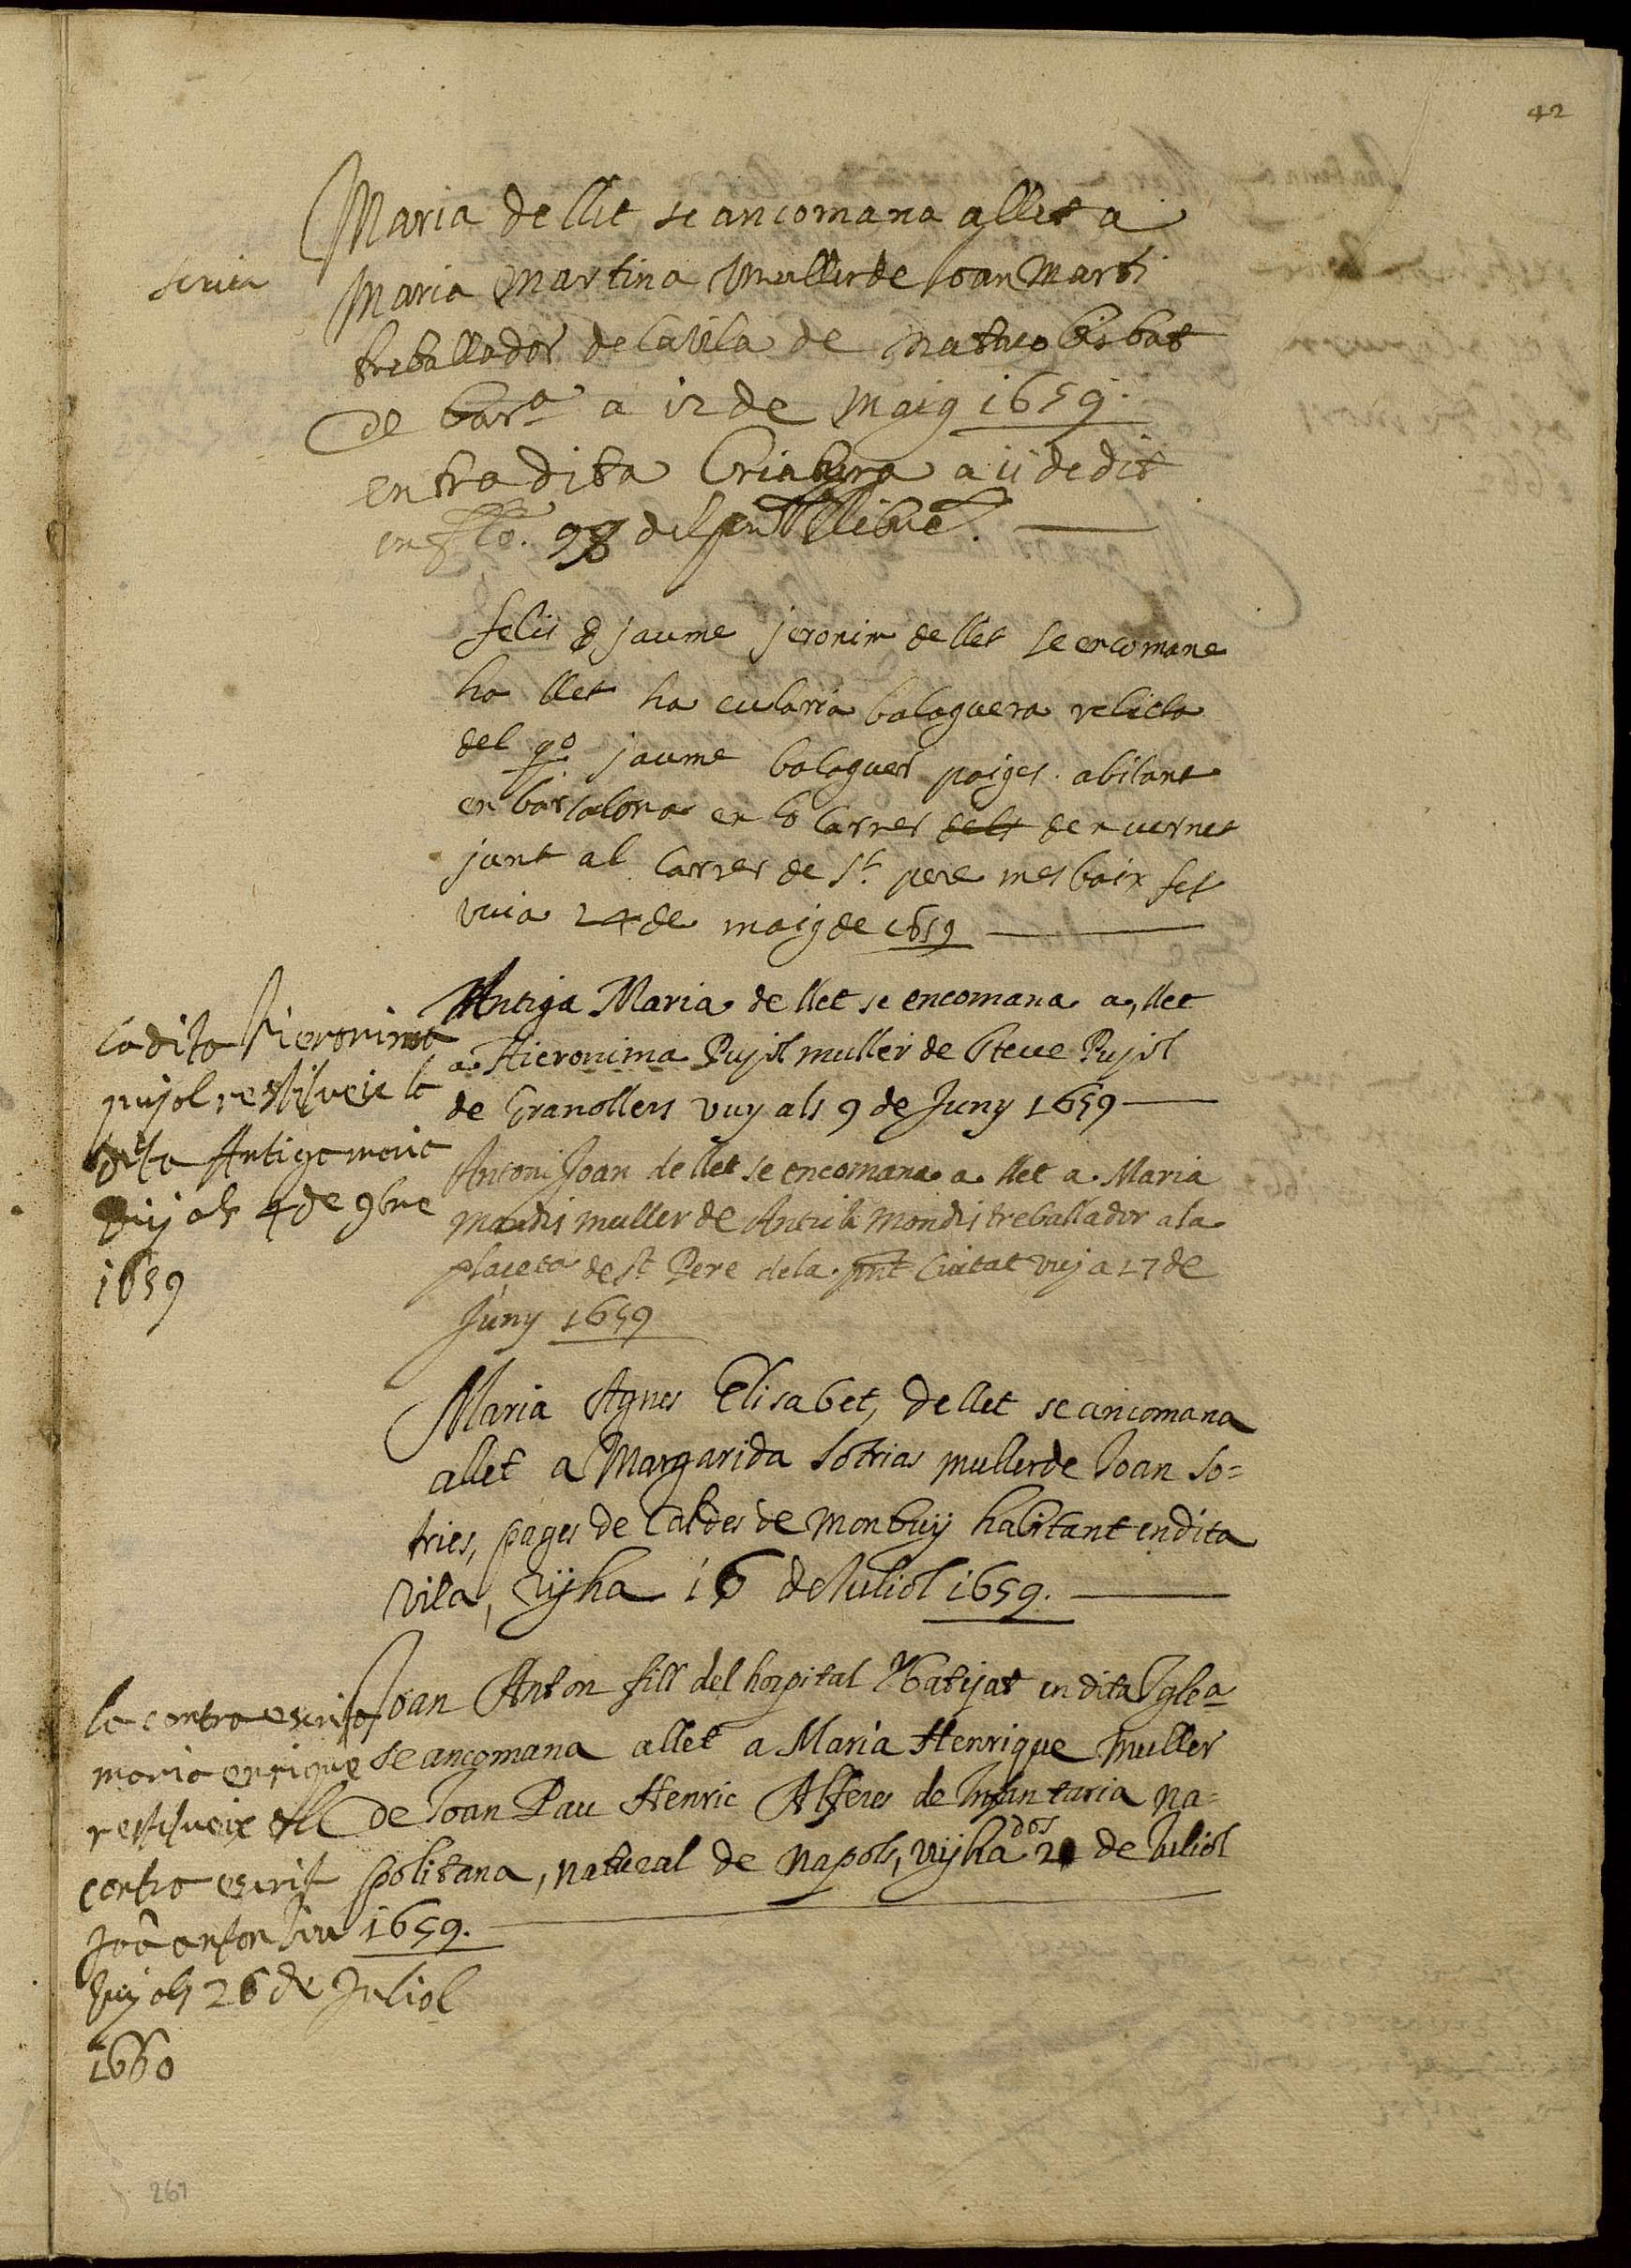 42
Maria de llet se ancomana allet a
Maria Martina muller de Joan Marti
treballador de la vila de bisbat
de bar.ª a 12 de Maig 1659.
entra dita Criatura a 11 de dit
en 98 del pnt llibre.
felis jaume jeronim de llet se encomane
ha llet ha eularia balaguera relicta
del q.º jaume balaguer paiges abitant
en barsalona en lo carrer den vernet
junt al carrer de S.t pere mes baix fet
vuia 24 de maig de 1659
Antiga Maria de llet se encomana a, llet
a Hieronima Pujol muller de Steve Pujol
de Granollers vuy als 9 de Juny 1659
la dita Hieronima
pujol restitueix la
dita Antiga maria
vuy als 4 de 9bre
1659
Antoni Joan de llet se encomana a llet a Maria
muller de treballador a la
placeta de St Pere de la pnt Ciutat vuy a 17 de
Juny 1659
Maria Agnes Elisabet, de llet se ancomana
allet a Margarida Sotrias muller de Joan So=
tries, pages de Caldes de Monbuÿ habitant en dita
vila, vÿ ha 16 de Juliol 1659.
Joan Anton fill del hospital Batejat en dita Iglea
se ancomana allet a Maria Henrique Muller
de Joan Pau Henric Alferes de Infantaria na=
politana, natural de Napols, vÿ ha dos 2 de Juliol
1659.
la contra escrita
maria enrique
restitueix lo
contra escrit
Joã anton
vuy als 26 de Juliol
1660
261